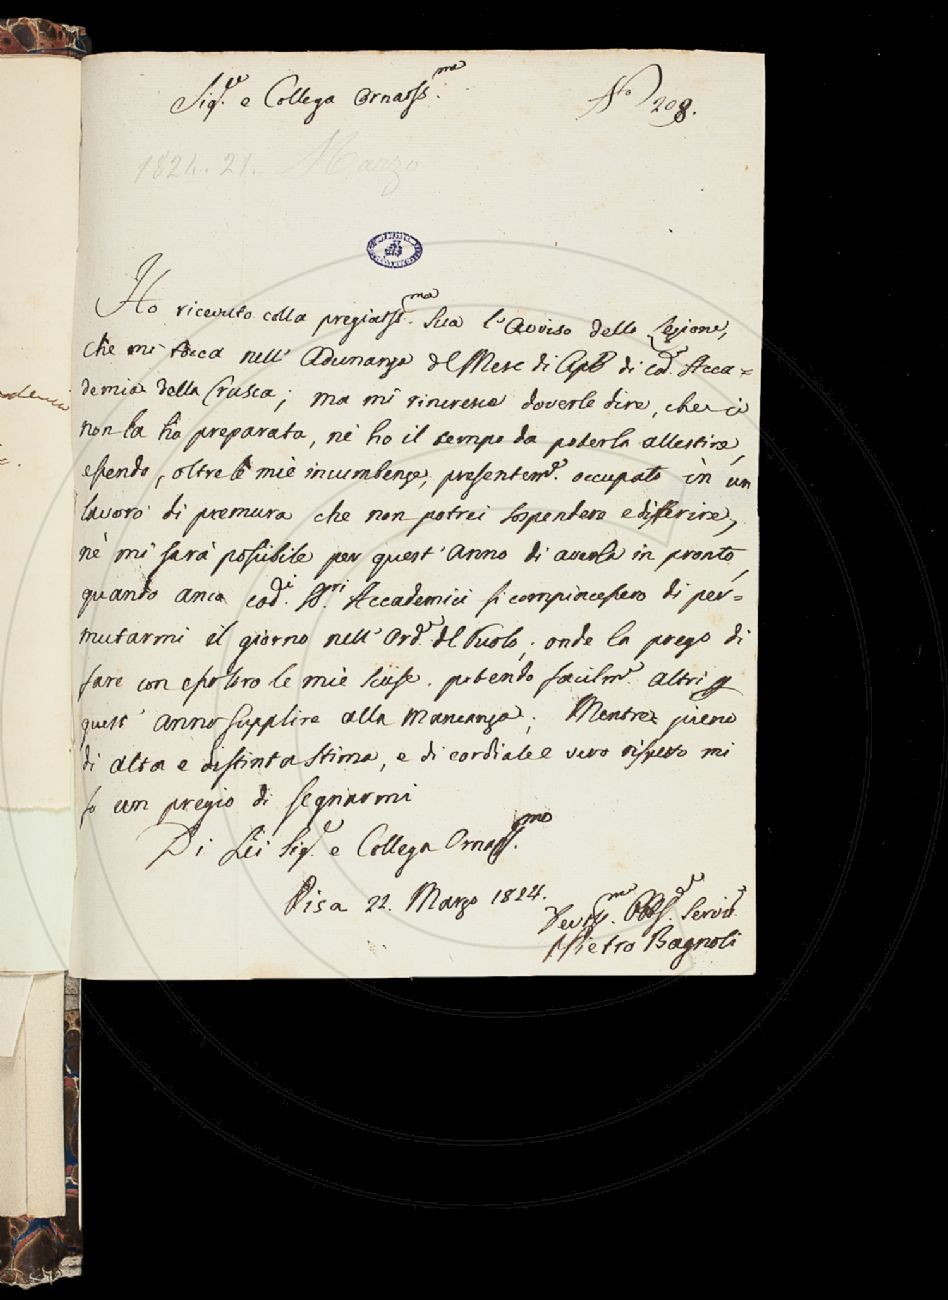 Sig.re e Collega Ornatiss.mo
N.to 208.
1824. 21. Marzo
Ho ricevuto colla pregiatiss.ma Sua l'avviso della Lezione,
che mi tocca nell' Adunanza del Mese di di cod. Acca=
demia della Crusca; ma mi rincresce doverle dire, che io
non la ho preparata, nè ho il tempo da poterla allestire,
essendo, oltre le mie incumbenze, presentem.e occupato in un
lavoro di premura che non potrei sospendere e differire,
nè mi sarà possibile per quest' anno di averla in pronto,
quando anco cod.i S.ri Accademici si compiacessero di per=
mutarmi il giorno nell' Ord.e del Ruolo; onde la prego di
fare con esso loro le mie scuse. potendo facilm.e altri p
quest' anno supplire alla mancanza; Mentre pieno
di alta e distinta stima, e di cordiale e vero rispetto mi
fo un pregio di segnarmi
Di Lei Sig.re e Collega Ornatiss.mo
Pisa 22. Marzo 1824.
Devotiss.mo Obb. Servit.e
Pietro Bagnoli